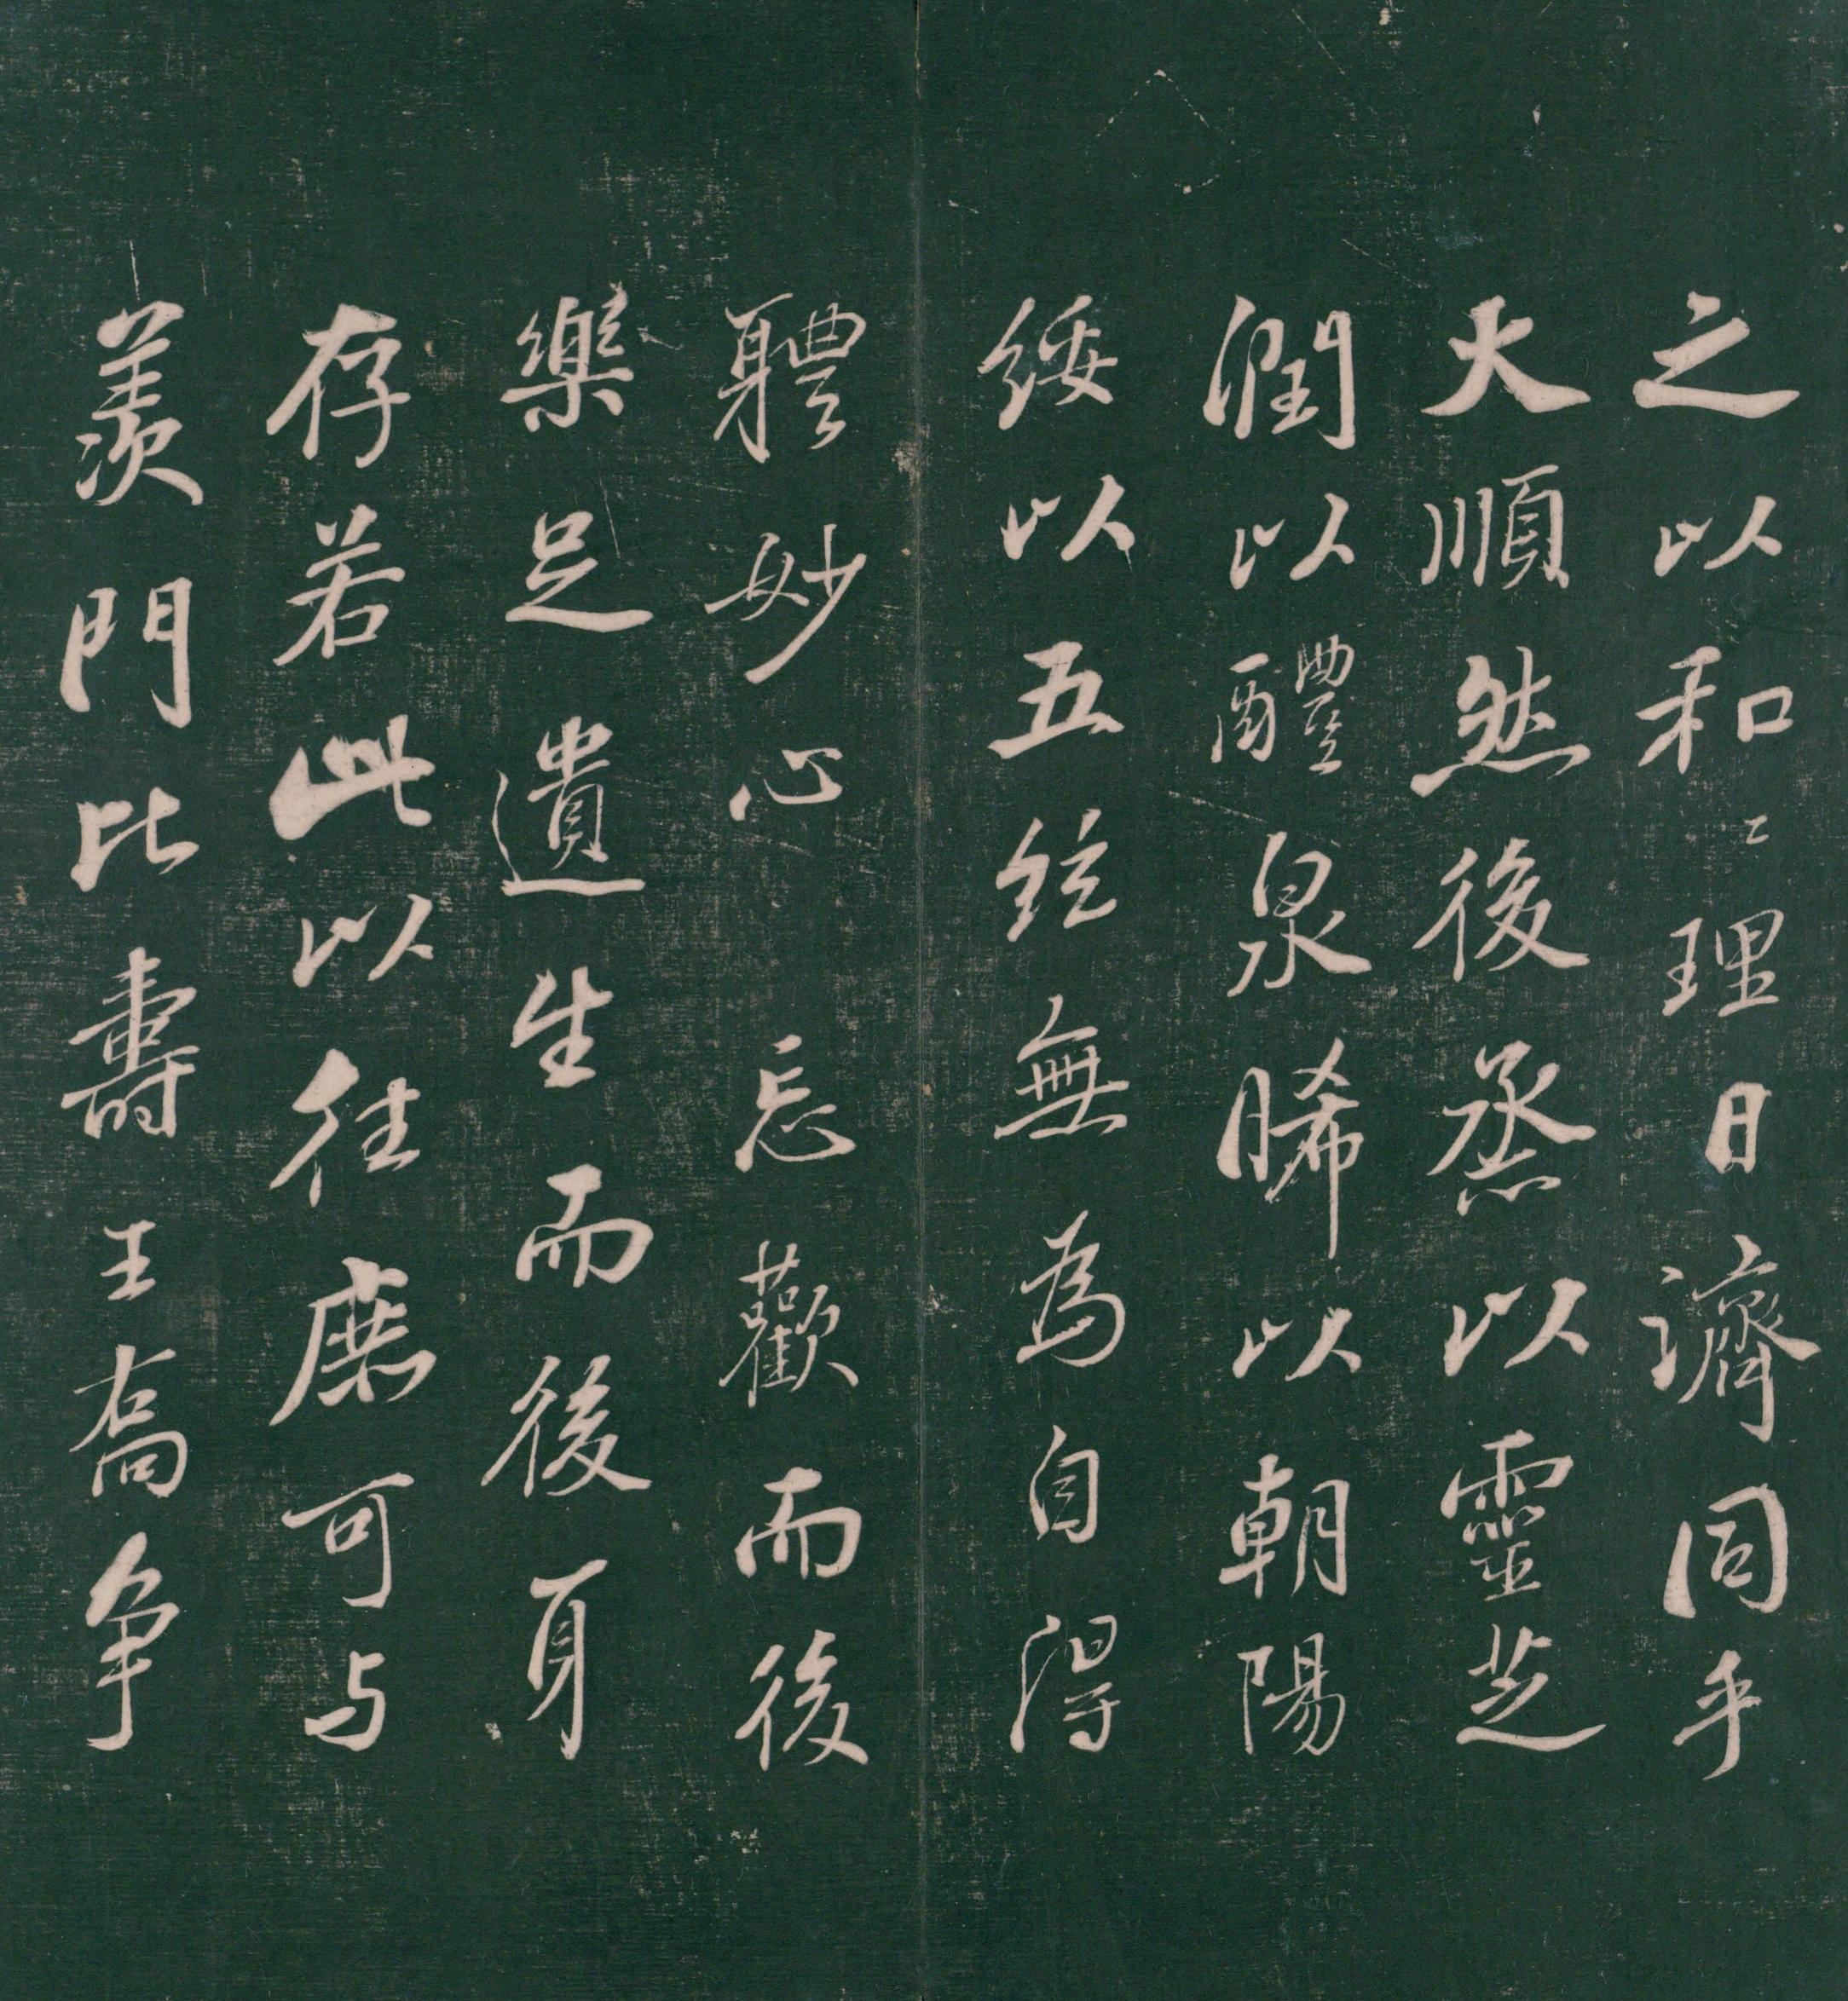 之以和〻理日濟同乎
大順然後烝以靈芝
潤以醴泉晞以朝陽
綏以五絃無為自得
軆妙心忘歡而後
樂足遺生而後身
存若此以往庶可与
羡門比壽王喬争